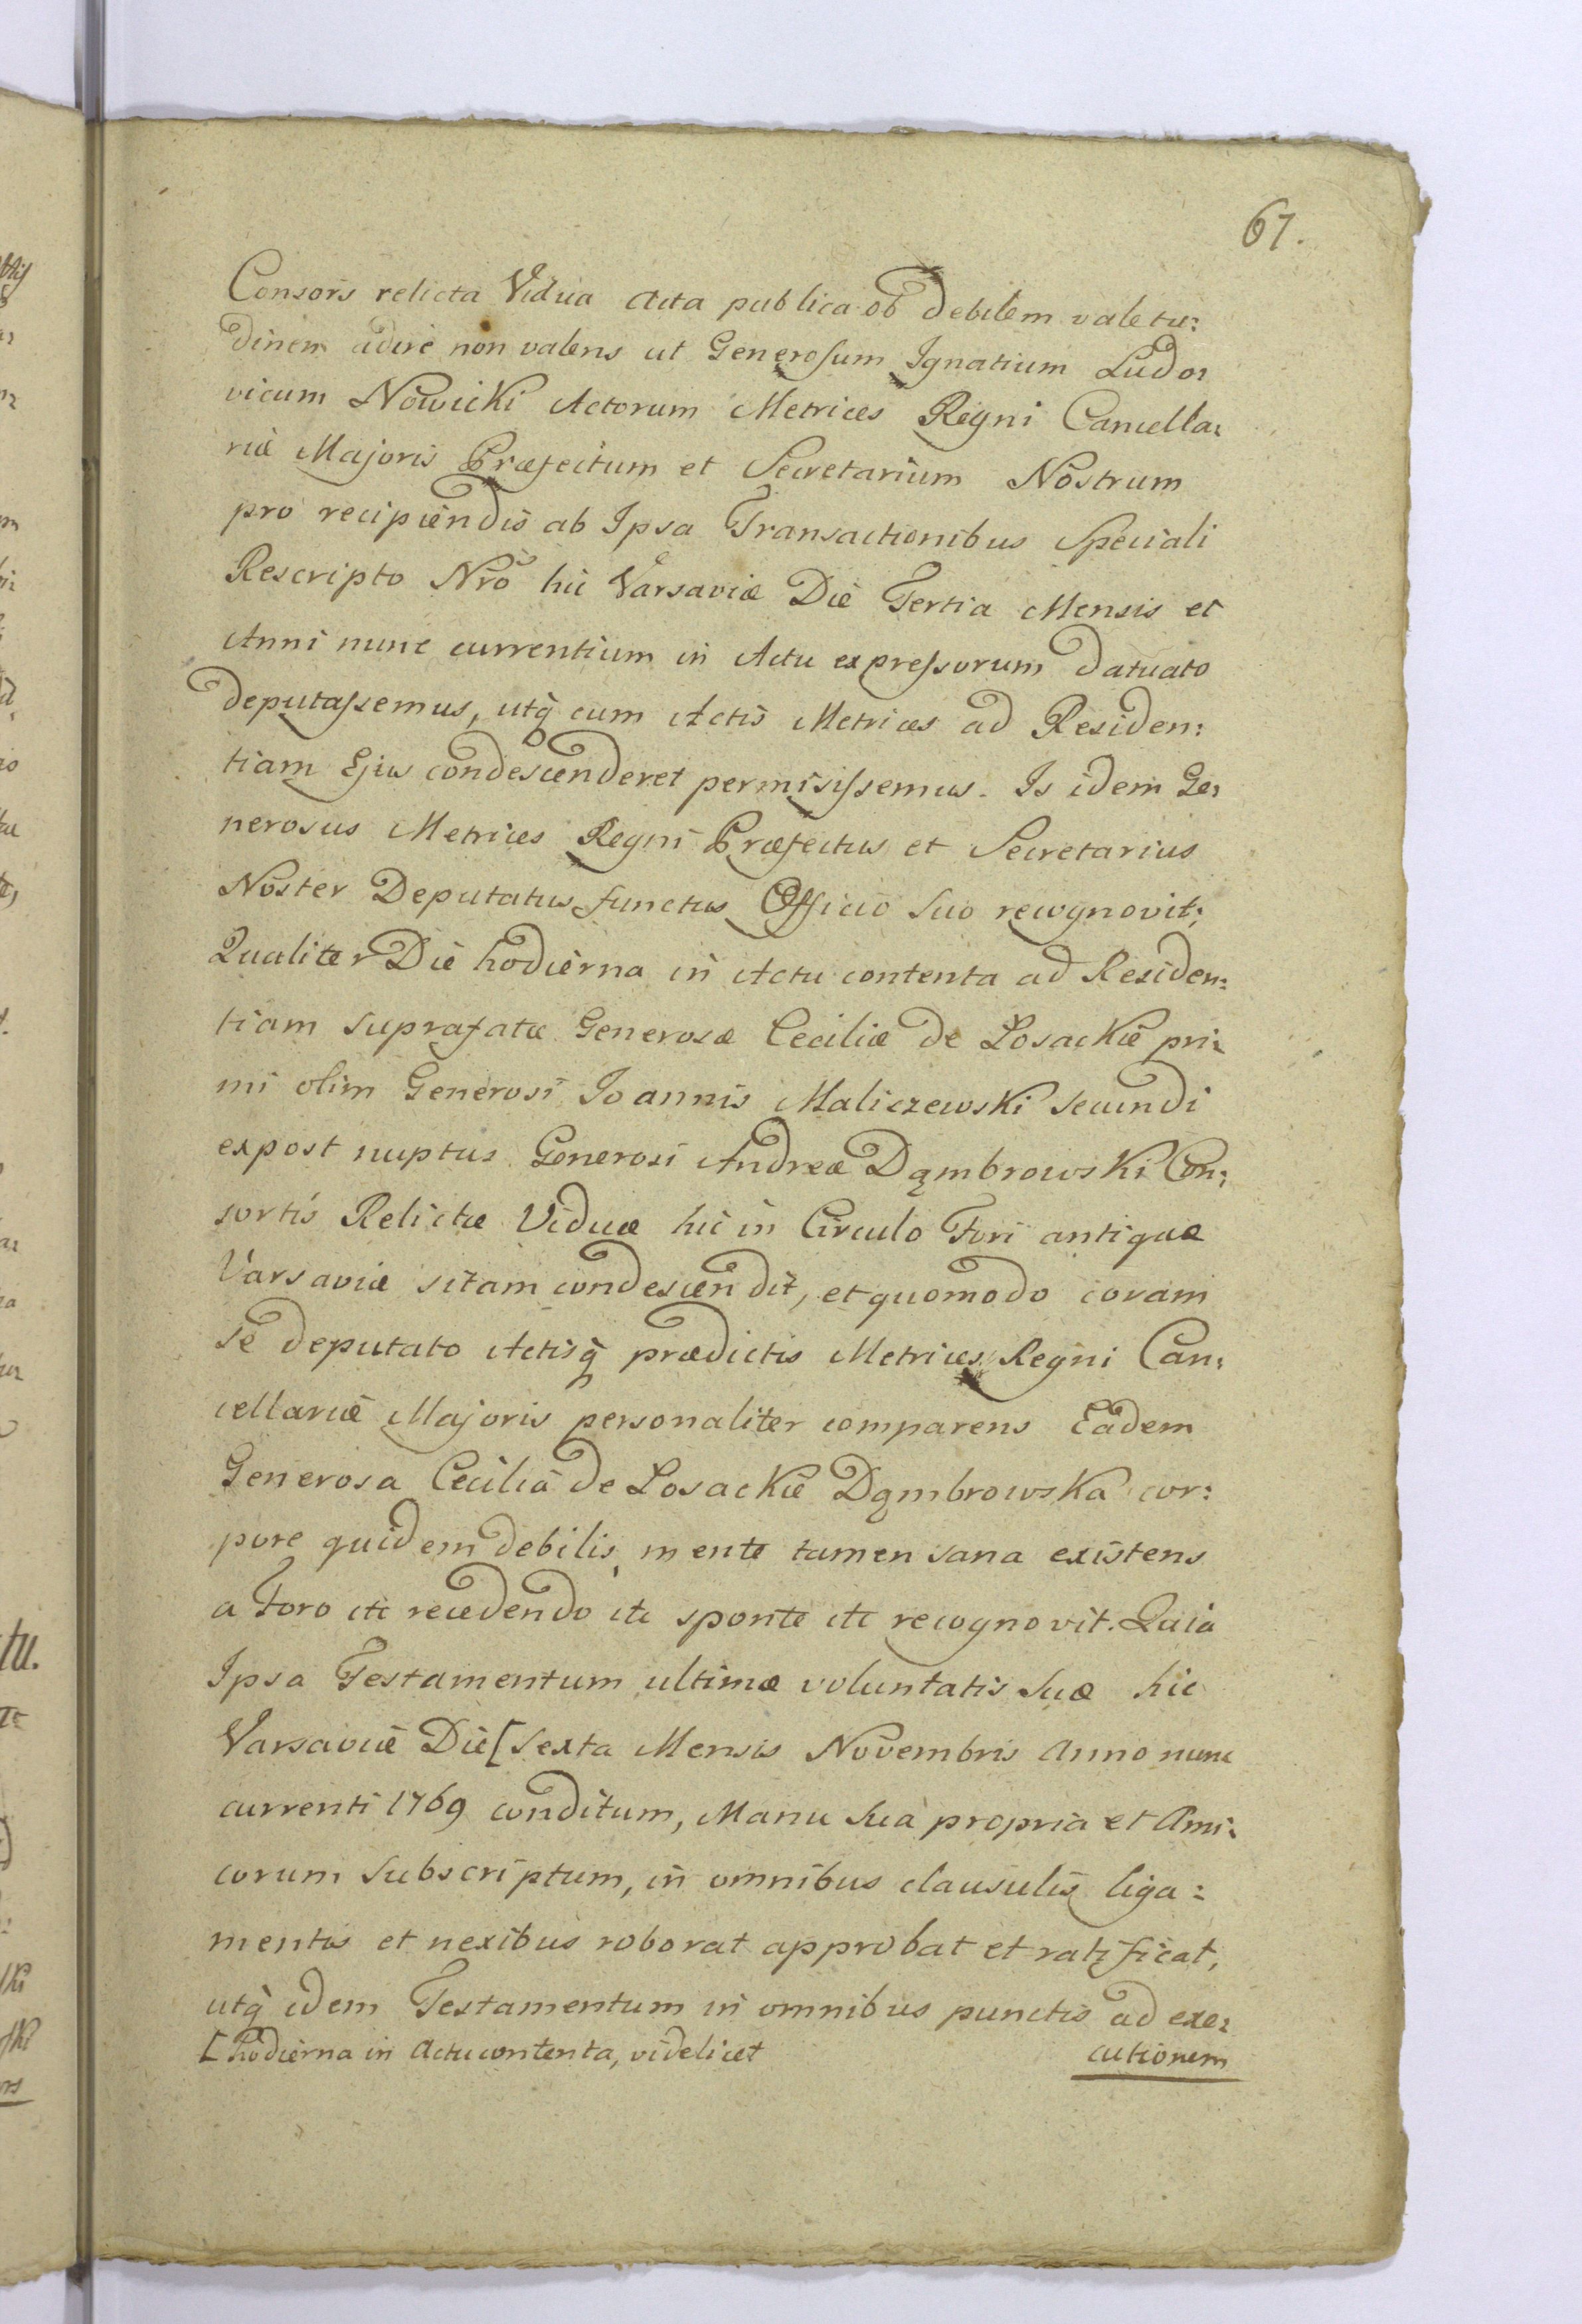 67.
Consors relicta Vidua Acta publica ob debilem valetu:
dinem adire non valens ut Generosum Ignatium Ludo:
vicum Nowicki Actorum Metrices Regni Cancella:
riæ Majoris Præfectum et Secretarium Nostrum
pro recipiendis ab Ipsa Transactionibus Speciali
Rescripto Nrõ hic Varsaviæ Die Tertia Mensis et
Anni nunc currentium in Actu expressorum datuato
deputassemus, utq̃ cum Actis Metrices ad Residen:
tiam Ejus condescenderet permisissemus. Is idem Ge:
nerosus Metrices Regni Præfectus et Secretarius
Noster Deputatus functus Officio suo recognovit;
Qualiter Die hodierna in Actu contenta ad Residen:
tiam suprafatæ Generosæ Ceciliæ de Łosackie pri:
mi olim Generosi Joannis Maliczewski secundi
expost nuptus Generosi Andreæ Dąmbrowski Con:
sortis Relictæ Viduæ hic in Circulo Fori antiquæ
Varsaviæ sitam condescendit, et quomodo coram
se deputato Actisq̃ prædictis Metrices Regni Can:
cellariæ Majoris personaliter comparens Eadem
Generosa Cecilia de Łosackie Dąmbrowska cor:
pore quidem debilis, mente tamen sana existens
a Foro etc recedendo etc sponte etc recognovit. Quia
Ipsa Testamentum ultimæ voluntatis suæ hic
Varsaviæ Die [sexta Mensis Novembris Anno nunc
currenti 1769 conditum, Manu sua propria et Ami:
corum subscriptum, in omnibus clausulis liga:
mentis et nexibus roborat approbat et ratificat,
utq̃ idem Testamentum in omnibus punctis ad exe:
[hodierna in Actu contenta, videlicet
cutionem